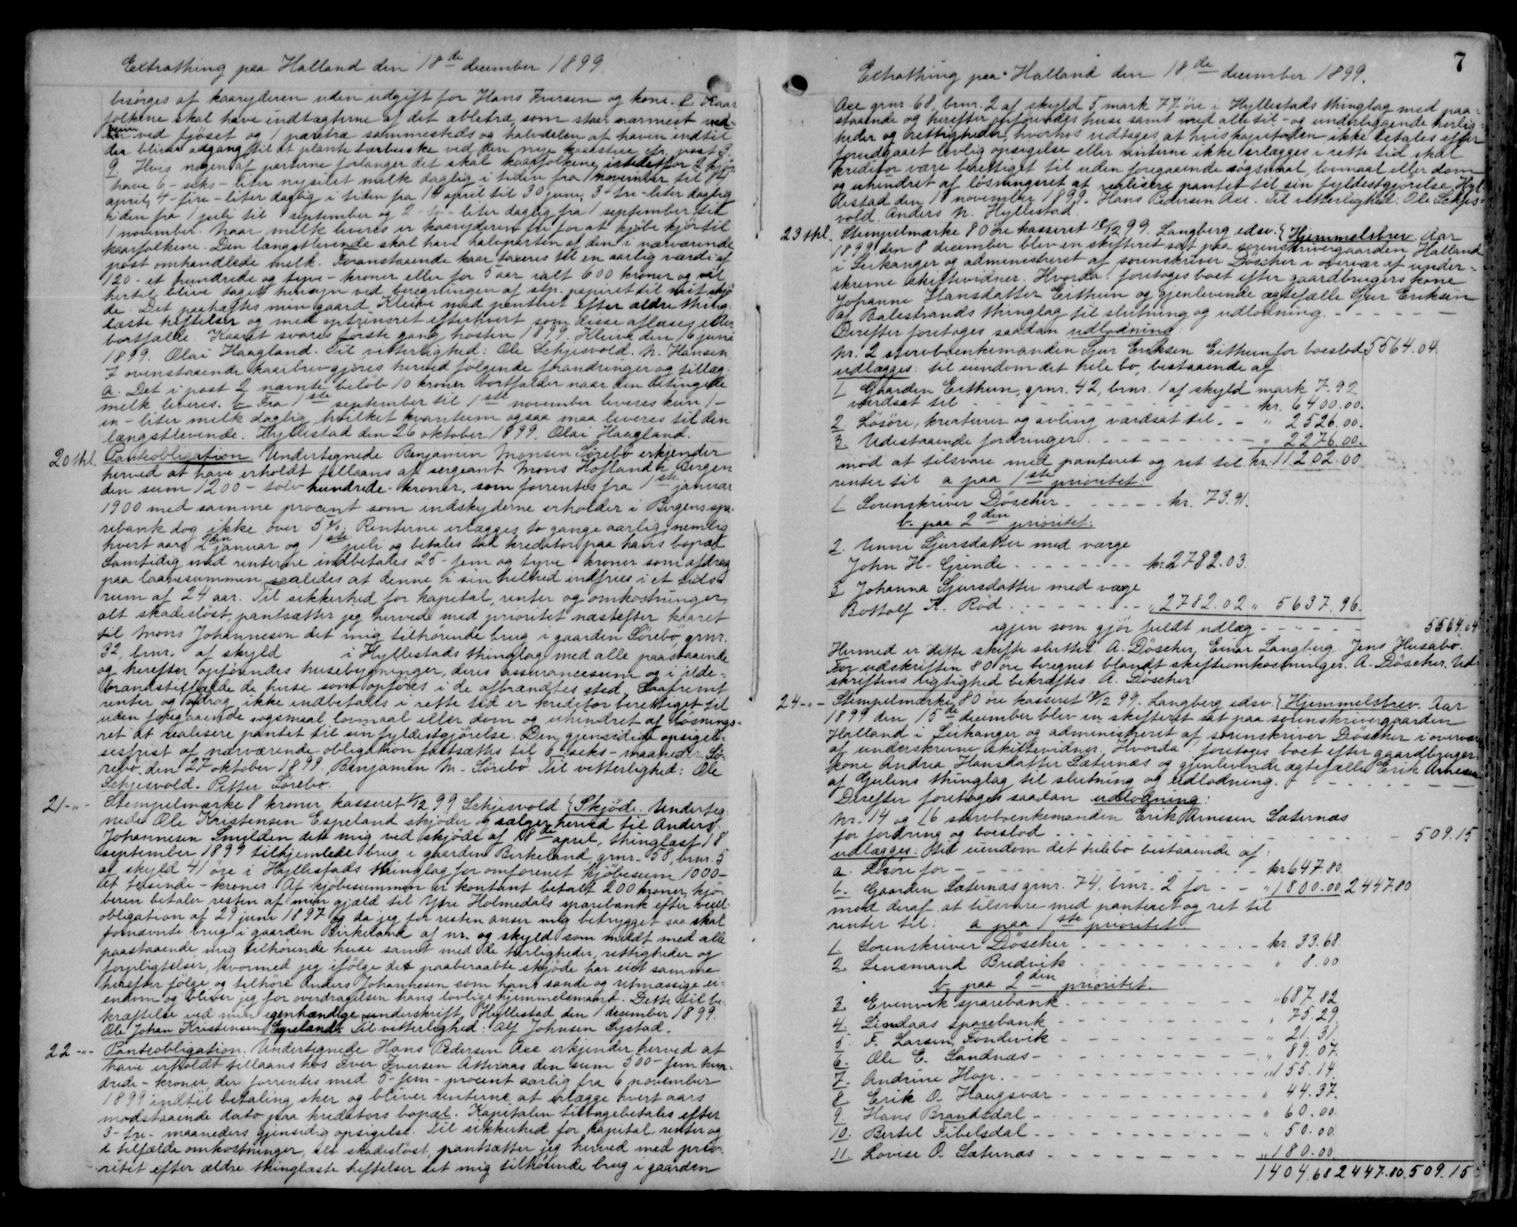 Extrathing paa Halland den 18de december 1899.
besörges af kaaryderen uden udgift for Hans Iversen og kone. Kaar
folkene skal have indtægterne af det æbletræ, som staar nærmest
ved fjöset og 1 pæretræ sammesteds og halvdelen af haven indtil
der bliver adgang til at plante bærbuske ved den nye post 3
9. Hvis nogen af parterne forlanger det skal kaarfolkene istedetfor 2 kjör
have 6 - seks - liter nysilet melk daglig i tiden fra 1 november til 1
april, 4 - fire - liter daglig i tiden fra 1 april til 30 juni, 3 - tre - liter daglig
i tiden fra 1 juli til 1 september og 2 - to - liter daglig fra 1 september til
1 november. Naar melk leveres er kaaryderen fri for at kjöbe kjör til
kaarfolkene. Den længstlevende skal have halvparten af den i nærværende
post omhandlede melk. Foranstaaende kaar taxeres til en aarlig værdi af
120 - et hundrede og tyve - kroner eller for 5 aar ialt 600 kroner og vil
hertil blive taget hensyn ved beregningen af stp. papiret til mit skjö
de. Det paahæftes min gaard Kleive med panteret efter ældre thing
læste heftelser og med optrinsret efterhvert som disse aflæses eller
bortfalde. Kaaret svares förste gang hösten 1899. Kleive den 16 juni
1899. Olai Haagland. Til vitterlighed: Ole Schjesvold. N. Hansen.
I ovenstaaende kaarbrev gjöres herved fölgende forandringer og tillæg:
a. Det i post 2 nævnte belöb 10 kroner bortfalder naar den betingede
melk leveres. b. Fra 1ste september til 1ste november leveres kun 1 -
en - liter melk daglig, hvilket kvantum ogsaa maa leveres til den
længstlevende. Hyllestad den 26 oktober 1899. Olai Haagland.
20 thl. Panteobligation. Undertegnede Benjamin Monsen Sörebö erkjender
herved at have erholdt tillaans af sergeant Mons Hofland i Bergen
den sum 1200 - tolv hundrede - kroner, som forrentes fra 1ste januar
1900 med samme procent som indskyderne erholder i Bergens spa-
rebank dog ikke over 5%. Renterne erlægges to gange aarlig nemlig
hvert aars 2den januar og 1ste juli og betales til kreditor paa hans bopæl
Samtidig med renterne indbetales 25 - fem og tyve - kroner som afdrag
paa laanesummen saaledes at denne i sin helhed indfries i et tids-
rum af 24 aar. Til sikkerhed for kapital, renter og omkostninger,
alt skadeslöst, pantsætter jeg herved med prioritet næstefter kaaret
til Mons Johannesen det mig tilhörende brug i gaarden Sörebö grnr.
32, brnr. af skyld i Hyllestads thinglag med alle paastaaende
og herefter opförendes husebygninger, deres assurancesum og i ilde-
brandstilfælde de huse som opföres i de afbrændtes sted. Saafremt
renter og afdrag ikke indbetales i rette tid er kreditor berettiget til
uden foregaaende sogsmaal lovmaal eller dom og uhindret af lösnings-
ret at realisere pantet til sin fyldestgjörelse. Den gjensidige opsigel-
sesfrist af nærværende obligation fastsættes til 6 - seks - maaneder. Sö-
rebö den 27 oktober 1899. Benjamin M. Sörebö. Til vitterlighed: Ole
Schjesvold. Petter Sörebö.
21 - " - Stempelmærke 8 kroner kasseret 1/12 99 Schjesvold. { Skjöde. Underteg-
nede Ole Kristensen Espeland skjöder og sælger herved til Anders
Johannesen Smilden det mig ved skjöde af 18de april, thinglæst 18
september 1899 tilhjemlede brug i gaarden Birkeland grnr. 58, brnr. 5
af skyld 41 öre i Hyllestads thinglag for omforenet kjöbesum 1000 -
et tusinde - kroner. Af kjöbesummen er kontant betalt 200 kroner, kjö-
beren betaler resten af min gjæld til Ytre Holmedals sparebank efter
obligation af 29 juni 1897 og da jeg for resten anser mig betrygget saa skal
fornævnte brug i gaarden Birkeland af nr. og skyld som meldt med alle
paastaaende mig tilhörende huse samt med de herligheder, rettigheder og
forpligtelser, hvormed jeg ifölge det paaberaabte skjöde har eiet samme
herefter fölge og tilhöre Anders Johannesen som hans sande og retmæssige ei-
endom og bliver jeg for overdragelsen hans lovlige hjemmelsmand. Dette til be-
kræftelse ved min egenhændige underskrift. Hyllestad den 1 december 1899.
Ole Johan Kristensen Espeland. Til vitterlighed: Alf Johnsen Systad.
22 - " - Panteobligation. Undertegnede Hans Pedersen Aae erkjender herved at
have erholdt tillaans hos Iver Iversen Atteraas den sum 500 - fem hun-
drede - kroner, der forrentes med 5 - fem - procent aarlig fra 6 november
1899 indtil betaling sker og bliver renterne at erlægge hvert aars
modstaaende dato paa kreditors bopæl. Kapitalen tilbagebetales efter
3 - tre - maaneders gjensidig opsigelse. Til sikkerhed for kapital, renter og
i tilfælde omkostninger, alt skadeslöst, pantsætter jeg herved med prio-
ritet efter ældre thinglæste heftelser det mig tilhörende brug i gaarden
7
Extrathing paa Halland den 18de december 1899.
Aae grnr. 68, brnr. 2 af skyld 5 mark 77 öre i Hyllestads thinglag med paa-
staaende og herefter opförendes huse samt med alle til- og underliggende herlig-
heder og rettigheder, hvorhos vedtages at hvis kapitalen ikke betales efter
forudgaaet lovlig opsigelse eller renterne ikke erlægges i rette tid skal
kreditor være berettiget til uden foregaaende sögsmaal, lovmaal eller dom
og uhindret af lösningsret at realisere pantet til sin fyldestgjörelse. Hyl-
lestad den 10 november 1899. Hans Pedersen Aae. Til vitterlighed: Ole Schjes-
vold. Anders N. Hyllestad.
23 thl. Stempelmærke 80 öre kasseret 18/12 99. Langberg edsv. { Hjemmelsbrev. Aar
1899 den 8 december blev en skifteret sat paa sorenskrivergaarden Halland
i Leikanger og administreret af sorenskriver Döscher i overvær af under-
skrevne skiftevidner. Hvorda: foretoges boet efter gaardbrugers kone
Johanne Hansdatter Eithun og gjenlevende ægtefælle Sjur Eriksen
af Balestrands thinglag til slutning og udlodning. - - - - -
Derefter foretoges saadan udlodning:
Nr. 2 stervboenkemanden Sjur Eriksen Eithun for boeslod 5564.04.
udlægges: til eiendom det hele bo, bestaaende af
1. Gaarden Eithun, grnr. 42, brnr. 1 af skyld mark 7.92
værdsat til - - - - - kr. 6400.00.
2. Lösöre, kreaturer og avling værdsat til. - " 2526.00.
3. Udestaaende fordringer. - - - - - " 2276.00.
mod at tilsvare med panteret og ret til kr. 11202.00
renter til a paa 1ste prioritet:
1. Sorenskriver Döscher - - - - - kr. 73.91.
b. paa 2den prioritet:
2. Unni Sjursdatter med værge
John H. Grinde - - - - - kr. 2782.03.
3. Johanna Sjursdatter med værge
Bottolf K. Röd. - - - - - " 2782.02 " 5637.96.
igjen som gjör fuldt udlæg - - - - - 5564.04
Hermed er dette skifte sluttet. A. Döscher, Einar Langberg. Jens Husabö.
For udskriften 80 öre beregnet blandt skifteomkostninger. A. Döscher. Ud-
skriftens rigtighed bekræftes. A. Döscher.
24 - " - Stempelmærke 80 öre kasseret 18/12 99. Langberg edsv. { Hjemmelsbrev. Aar
1899 den 15de december blev en skifteret sat paa sorenskrivergaarden
Halland i Leikanger og administreret af sorenskriver Döscher i overvær
af underskrevne skiftevidner. Hvorda: foretoges boet efter gaardbruger
kone Andrea Hansdatter Sæternæs og gjenlevende ægtefælle Erik Arnesen
af Gulens thinglag til slutning og udlodning. - - - - -
Derefter foretoges saadan udlodning:
Nr. 14 og 16 stervboenkemanden Erik Arnesen Sæternæs
for fordring og boeslod - - - - - 509.15
udlægges: til eiendom det hele bo bestaaende af
a. Lösöre for - - - - - kr. 647.80.
b. Gaarden Sæternæs grnr. 74, brnr. 2 for - - " 1800.00. 2447.80
mod deraf at tilsvare med panteret og ret til
renter til: a paa 1ste prioritet:
1. Sorenskriver Döscher - - - - - kr. 33.68.
2. Lensmand Bredvik - - - - - " 8.00
b. paa 2den prioritet.
3. Evenvik sparebank - - - - - " 687.82
4. Lindaas sparebank - - - - - " 75.29
5. F. Larsen Fondevik - - - - - " 21.31
6. Ole E. Sandnæs - - - - - " 89.07.
7. Andrine Hop. - - - - - " 155.14.
8. Erik O. Haugsvær - - - - - " 44.37.
9. Hans Brandsdal - - - - - " 60.00.
10. Bertel Fibelsdal - - - - - " 50.00
11. Lovise O. Sæternæs - - - - - " 180.00.
1404.68 2447.80. 509.15